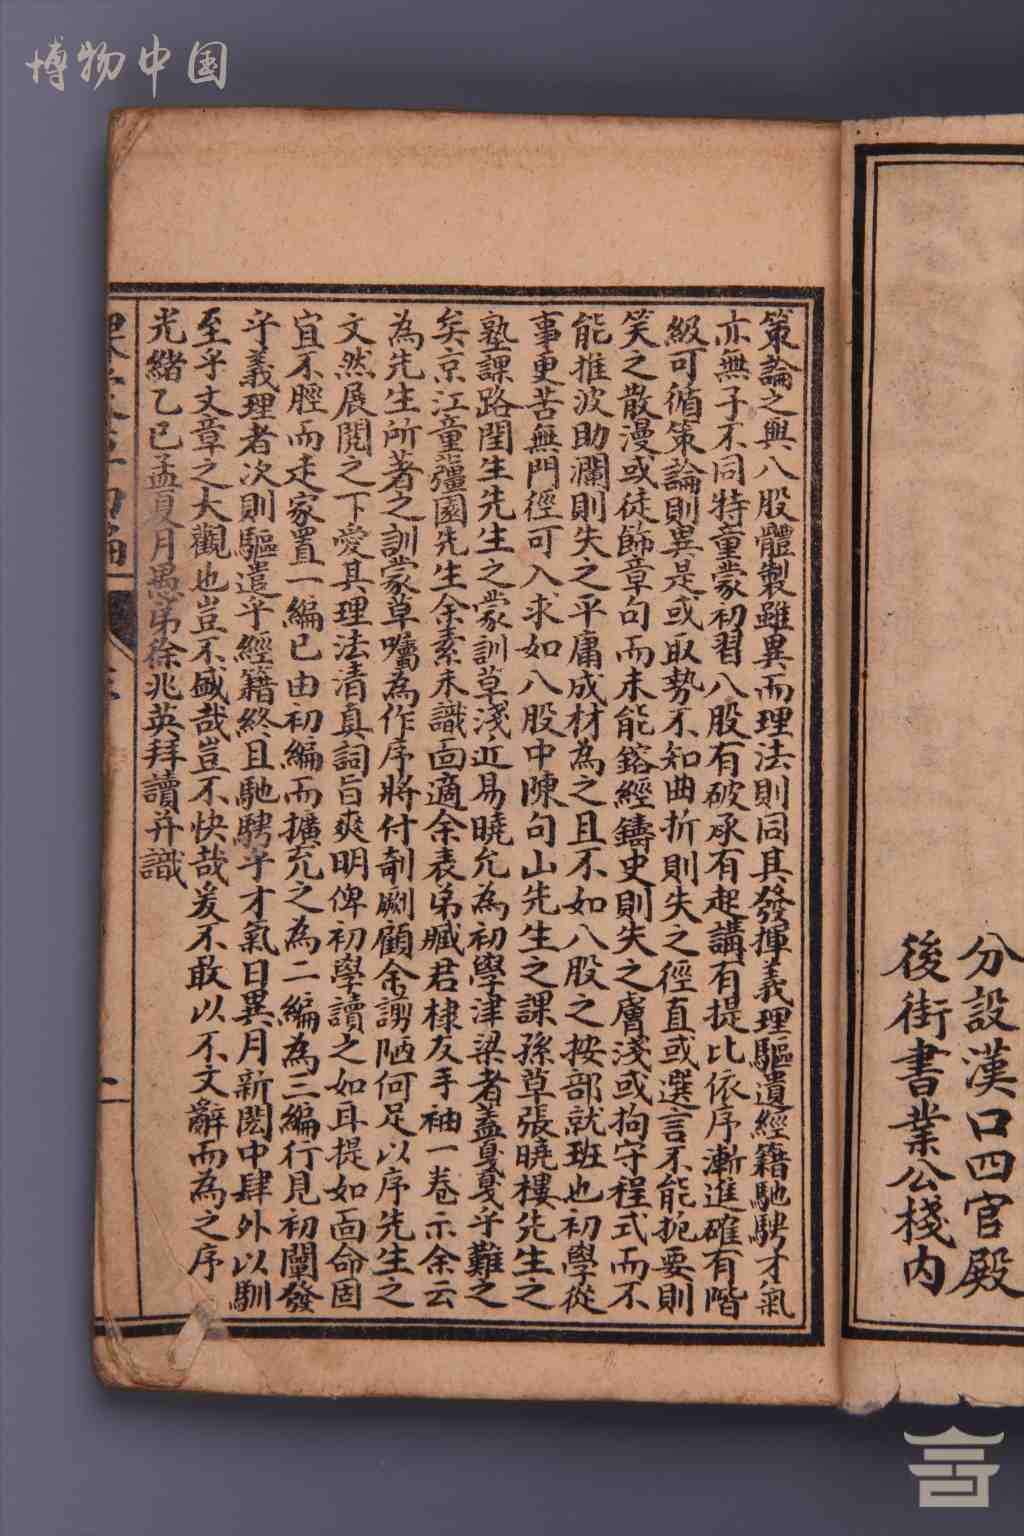 博物中国
分設漢口四官殿
後街書業公棧内
策論之與八股體製雖異而理法則同其發揮義理驅遣經籍馳騁才氣
亦無子不同特童蒙初習八股有破承有起講有提比依序漸進確有階
級可循策論則異是或取勢不知曲折則失之徑直或選言不能扼要則
笑之散漫或徒飾章句而未能鎔經鑄史則失之膚淺或拘守程式而不
能推波助瀾則失之平庸成材為之且不如八股之按部就班也初學從
事更苦無門徑可入求如八股中陳句山先生之課孫草張曉樓先生之
塾課路閏生先生之蒙訓草淺近易曉允為初學津梁者蓋戛戛乎難之
矣京江童彊園先生余素未識面適余表弟臧君棣友手袖一卷示余云
為先生所著之訓蒙草囑為作序將付剞劂顧余謭陋何足以序先生之
文然展閱之下愛其理法清真詞旨爽明俾初學讀之如耳提如面命固
宜不脛而走家置一編已由初編而擴充之為二編為三編行見初闡發
乎義理者次則驅遣乎經籍終且馳騁乎才氣日異月新閎中肆外以馴
至乎文章之大觀也豈不盛哉豈不快哉爰不敢以不文辭而為之序
光緒乙巳孟夏月愚弟徐兆英拜讀并識
二